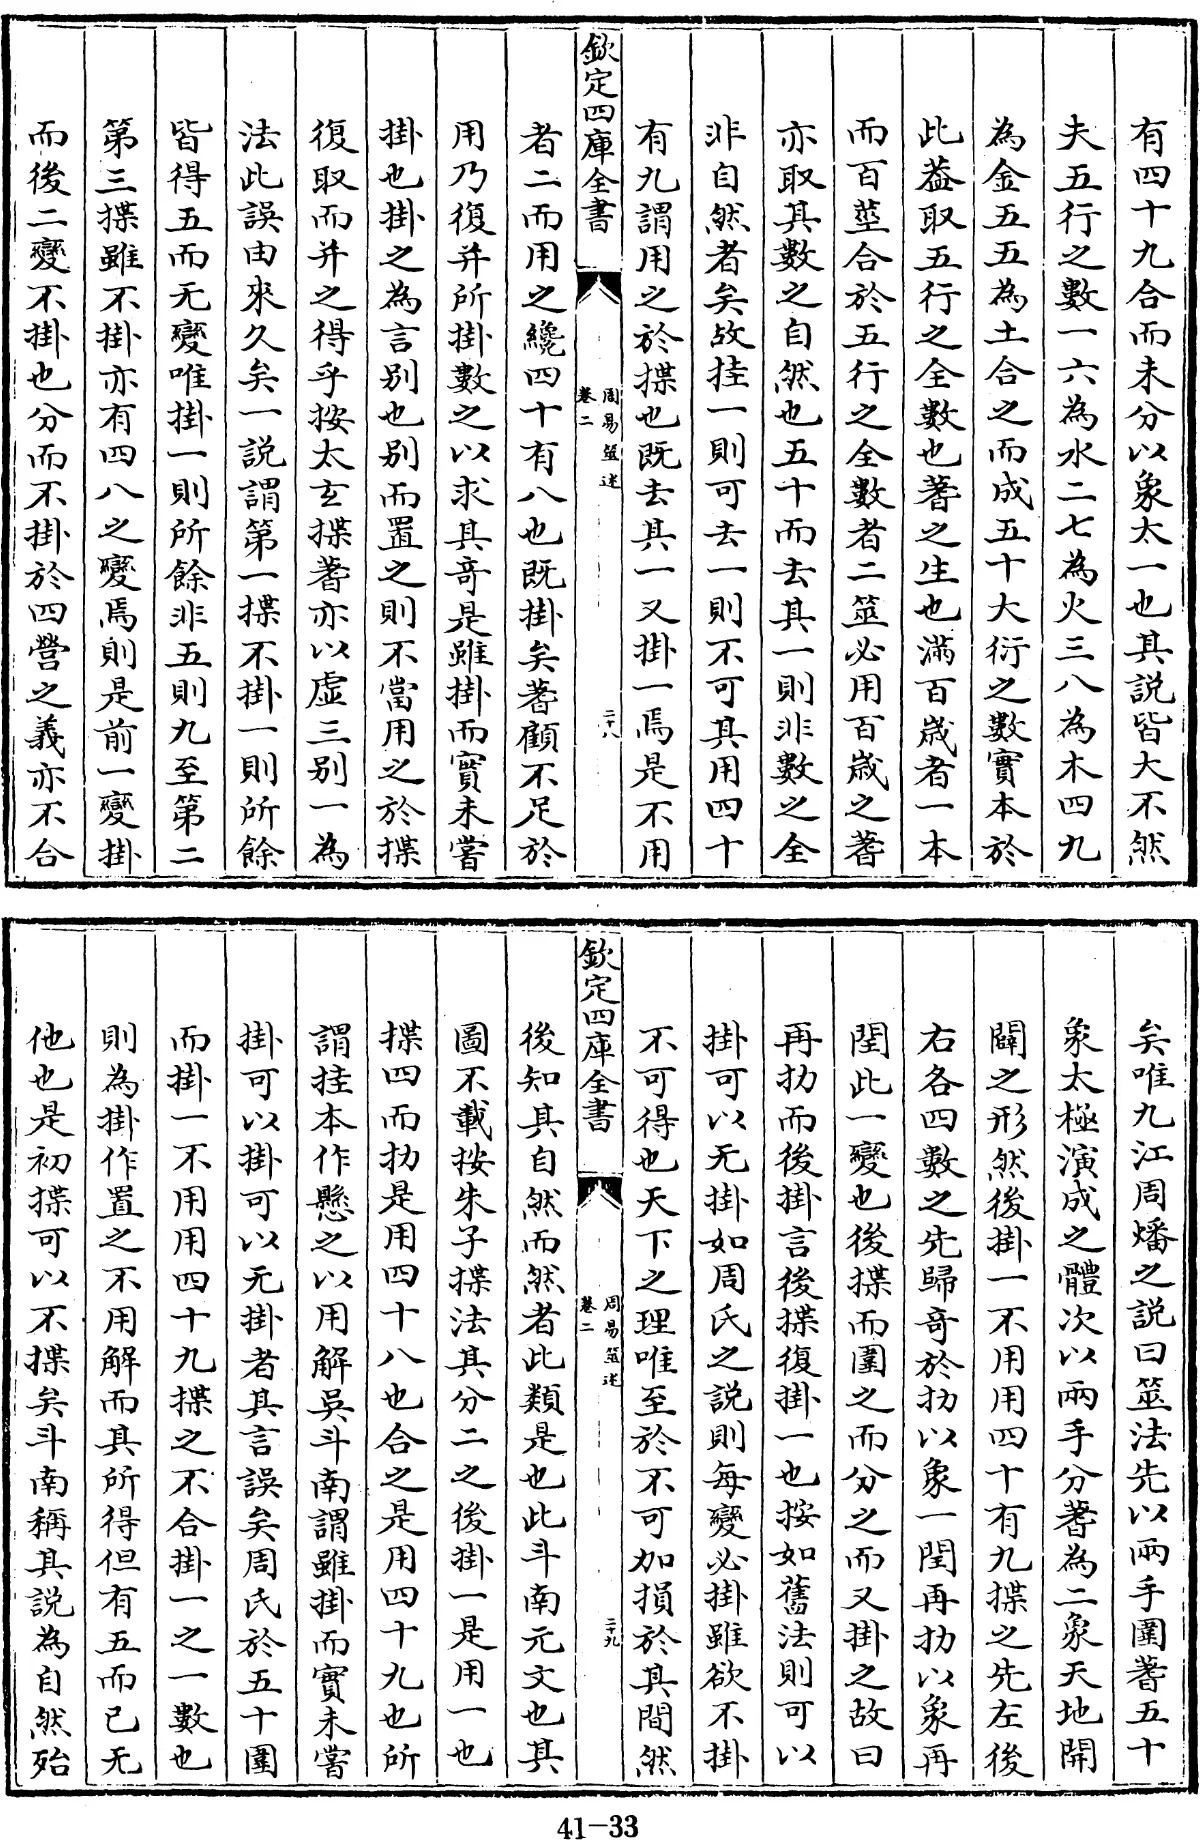 有四十九合而未分以象太一也其説皆大不然
夫五行之數一六為水二七為火三八為木四九
為金五五為土合之而成五十大衍之數實本於
此葢取五行之全數也蓍之生也滿百歲者一本
而百莖合於五行之全數者二筮必用百歲之蓍
亦取其數之自然也五十而去其一則非數之全
非自然者矣故挂一則可去一則不可其用四十
有九謂用之於揲也既去其一又掛一焉是不用
欽定四庫全書
周易筮述
卷二
二十八
者二而用之纔四十有八也既掛矣蓍顧不足於
用乃復并所掛數之以求其竒是雖掛而實未嘗
掛也掛之為言别也别而置之則不當用之於揲
復取而并之得乎按太玄揲蓍亦以虛三别一為
法此誤由來久矣一説謂第一揲不掛一則所餘
皆得五而无變唯掛一則所餘非五則九至第二
第三揲雖不掛亦有四八之變焉則是前一變掛
而後二變不掛也分而不掛於四營之義亦不合
矣唯九江周燔之説曰筮法先以兩手圍蓍五十
象太極演成之體次以兩手分蓍為二象天地開
闢之形然後掛一不用用四十有九揲之先左後
右各四數之先歸竒於扐以象一閏再扐以象再
閏此一變也後揲而圍之而分之而又掛之故曰
再扐而後掛言後揲復掛一也按如舊法則可以
掛可以无掛如周氏之説則每變必掛雖欲不掛
不可得也天下之理唯至於不可加損於其間然
欽定四庫全書
周易筮述
卷二
二十九
後知其自然而然者此類是也此斗南元文也其
圖不載按朱子揲法其分二之後掛一是用一也
揲四而扐是用四十八也合之是用四十九也所
謂挂本作懸之以用解吳斗南謂雖掛而實未嘗
掛可以掛可以无掛者其言誤矣周氏於五十圍
而掛一不用用四十九揲之不合掛一之一數也
則為掛作置之不用解而其所得但有五而已无
他也是初揲可以不揲矣斗南稱其説為自然殆
41-33